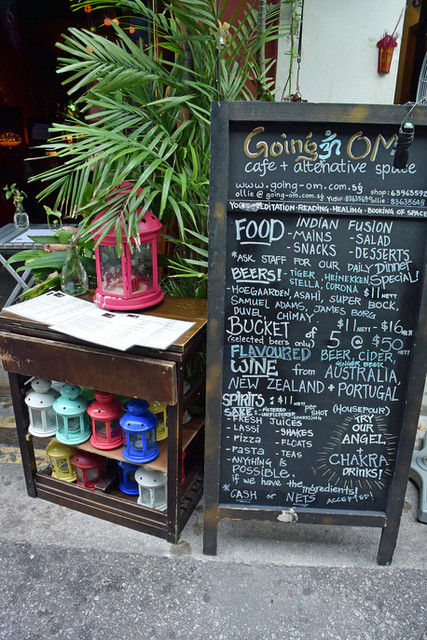 Going ॐ OM
cafe + alternative space
www.going-om.com.sg shop: 63965592
ollie @ going-om.com.sg
YOGA-MEDITATION-READING-HEALING-BOOKING OF SPACE
FOOD - INDIAN FUSION
- MAINS - SALAD
- SNACKS - DESSERTS
*ASK STAFF FOR OUR DAILY Dinner Special!
BEERS! - TIGER, HEINEKEN
STELLA, CORONA $11 NETT
- HOEGAARDEN, ASAHI, SUPER BOCK
SAMUEL ADAMS, JAMES BORG
DUVEL, CHIMAY. $11 NETT - $16 NETT
BUCKET of 5 @ $50 NETT
(selected beers only)
FLAVOURED BEER, CIDER,
GINGER BEER
WINE from AUSTRALIA,
NEW ZEALAND + PORTUGAL
SPIRITS : $11 NETT per SHOT (HOUSEPOUR)
SAKE -
- FRESH JUICES
- LASSI - SHAKES
- PIZZA - FLOATS
- PASTA - TEAS
- ANYTHING is
POSSIBLE
if we have the ingredients!
TRY
OUR
ANGEL
+
CHAKRA
DRINKS!
*CASH or NETS ACCEPTED!